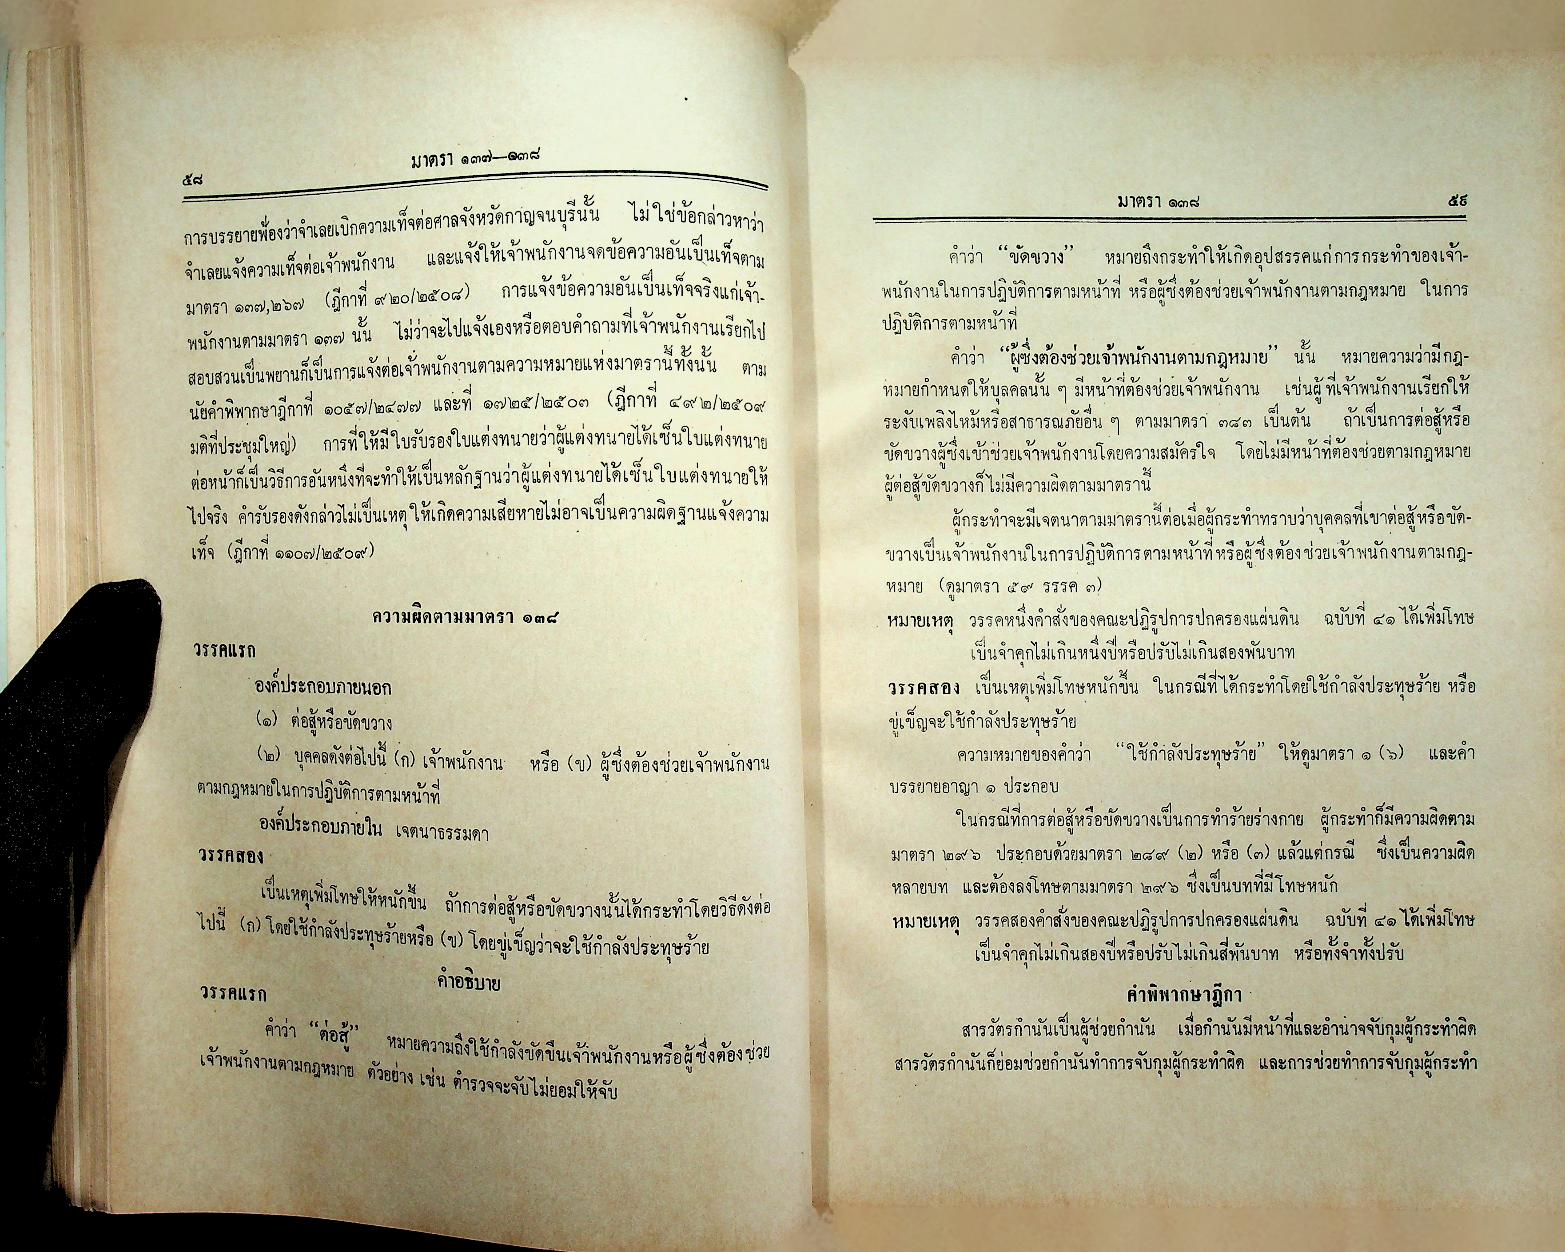 ๕๘
มาตรา ๑๓๗—๑๓๘
การบรรยายฟ้องว่าจำเลยเบิกความเท็จต่อศาลจังหวัดกาญจนบุรีนั้น ไม่ใช่ข้อกล่าวหาว่า
จำเลยแจ้งความเท็จต่อเจ้าพนักงาน และแจ้งให้เจ้าพนักงานจดข้อความอันเป็นเท็จตาม
มาตรา ๑๓๗,๒๖๗ (ฎีกาที่ ๙๒๐/๒๕๐๘) การแจ้งข้อความอันเป็นเท็จจริงแก่เจ้า-
พนักงานตามมาตรา ๑๓๗ นั้น ไม่ว่าจะไปแจ้งเองหรือตอบคำถามที่เจ้าพนักงานเรียกไป
สอบสวนเป็นพยานก็เป็นการแจ้งต่อเจ้าพนักงานตามความหมายแห่งมาตรานี้ทั้งนั้น ตาม
นัยคำพิพากษาฎีกาที่ ๑๐๕๗/๒๔๗๗ และที่ ๑๗๒๕/๒๕๐๓ (ฎีกาที่ ๔๙๒/๒๕๐๙
มติที่ประชุมใหญ่) การที่ให้มีใบรับรองใบแต่งทนายว่าผู้แต่งทนายได้เซ็นใบแต่งทนาย
ต่อหน้าก็เป็นวิธีการอันหนึ่งที่จะทำให้เป็นหลักฐานว่าผู้แต่งทนายได้เซ็นใบแต่งทนายให้
ไปจริง คำรับรองดังกล่าวไม่เป็นเหตุให้เกิดความเสียหายไม่อาจเป็นความผิดฐานแจ้งความ
เท็จ (ฎีกาที่ ๑๑๐๗/๒๕๐๙)
ความผิดตามมาตรา ๑๓๘
วรรคแรก
องค์ประกอบภายนอก
(๑) ต่อสู้หรือขัดขวาง
(๒) บุคคลดังต่อไปนี้ (ก) เจ้าพนักงาน หรือ (ข) ผู้ซึ่งต้องช่วยเจ้าพนักงาน
ตามกฎหมายในการปฏิบัติการตามหน้าที่
องค์ประกอบภายใน เจตนาธรรมดา
วรรคสอง
เป็นเหตุเพิ่มโทษให้หนักขึ้น ถ้าการต่อสู้หรือขัดขวางนั้นได้กระทำโดยวิธีดังต่อ
ไปนี้ (ก) โดยใช้กำลังประทุษร้ายหรือ (ข) โดยขู่เข็ญว่าจะใช้กำลังประทุษร้าย
คำอธิบาย
วรรคแรก
คำว่า “ต่อสู้” หมายความถึงใช้กำลังขัดขืนเจ้าพนักงานหรือผู้ซึ่งต้องช่วย
เจ้าพนักงานตามกฎหมาย ตัวอย่าง เช่น ตำรวจจะจับไม่ยอมให้จับ
มาตรา ๑๓๘
๕๙
คำว่า “ขัดขวาง” หมายถึงกระทำให้เกิดอุปสรรคแก่การกระทำของเจ้า-
พนักงานในการปฏิบัติการตามหน้าที่ หรือผู้ซึ่งต้องช่วยเจ้าพนักงานตามกฎหมาย ในการ
ปฏิบัติการตามหน้าที่
คำว่า “ผู้ซึ่งต้องช่วยเจ้าพนักงานตามกฎหมาย” นั้น หมายความว่ามีกฎ-
หมายกำหนดให้บุคคลนั้น ๆ มีหน้าที่ต้องช่วยเจ้าพนักงาน เช่นผู้ที่เจ้าพนักงานเรียกให้
ระงับเพลิงไหม้หรือสาธารณภัยอื่น ๆ ตามมาตรา ๓๘๓ เป็นต้น ถ้าเป็นการต่อสู้หรือ
ขัดขวางผู้ซึ่งเข้าช่วยเจ้าพนักงานโดยความสมัครใจ โดยไม่มีหน้าที่ต้องช่วยตามกฎหมาย
ผู้ต่อสู้ขัดขวางก็ไม่มีความผิดตามมาตรานี้
ผู้กระทำจะมีเจตนาตามมาตรานี้ต่อเมื่อผู้กระทำทราบว่าบุคคลที่เขาต่อสู้หรือขัด-
ขวางเป็นเจ้าพนักงานในการปฏิบัติการตามหน้าที่หรือผู้ซึ่งต้องช่วยเจ้าพนักงานตามกฎ-
หมาย (ดูมาตรา ๕๙ วรรค ๓)
หมายเหตุ วรรคหนึ่งคำสั่งของคณะปฏิรูปการปกครองแผ่นดิน ฉบับที่ ๔๑ ได้เพิ่มโทษ
เป็นจำคุกไม่เกินหนึ่งปีหรือปรับไม่เกินสองพันบาท
วรรคสอง เป็นเหตุเพิ่มโทษหนักขึ้น ในกรณีที่ได้กระทำโดยใช้กำลังประทุษร้าย หรือ
ขู่เข็ญจะใช้กำลังประทุษร้าย
ความหมายของคำว่า “ใช้กำลังประทุษร้าย” ให้ดูมาตรา ๑ (๖) และคำ
บรรยายอาญา ๑ ประกอบ
ในกรณีที่การต่อสู้หรือขัดขวางเป็นการทำร้ายร่างกาย ผู้กระทำก็มีความผิดตาม
มาตรา ๒๙๖ ประกอบด้วยมาตรา ๒๘๙ (๒) หรือ (๓) แล้วแต่กรณี ซึ่งเป็นความผิด
หลายบท และต้องลงโทษตามมาตรา ๒๙๖ ซึ่งเป็นบทที่มีโทษหนัก
หมายเหตุ วรรคสองคำสั่งของคณะปฏิรูปการปกครองแผ่นดิน ฉบับที่ ๔๑ ได้เพิ่มโทษ
เป็นจำคุกไม่เกินสองปีหรือปรับไม่เกินสี่พันบาท หรือทั้งจำทั้งปรับ
คำพิพากษาฎีกา
สารวัตรกำนันเป็นผู้ช่วยกำนัน เมื่อกำนันมีหน้าที่และอำนาจจับกุมผู้กระทำผิด
สารวัตรกำนันก็ย่อมช่วยกำนันทำการจับกุมผู้กระทำผิด และการช่วยทำการจับกุมผู้กระทำ